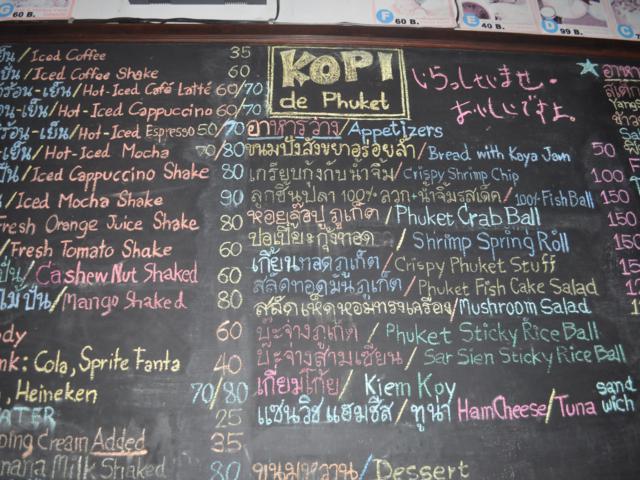 G 60 B.
F 60 B.
E 40 B.
D 99 B.
KOPI
de Phuket
いらっしゃいませ.
おいしいですよ.
เย็น/Iced Coffee 35
ปั่น/Iced Coffee Shake 60
ร้อน-เย็น/Hot-Iced Café Latté 60/70
ร้อน-เย็น/Hot-Iced Cappuccino 60/70
ร้อน-เย็น/Hot-Iced Espresso 50/70
-เย็น/Hot-Iced Mocha 70/80
น/Iced Cappuccino Shake 80
น/Iced Mocha Shake 90
Fresh Orange Juice Shake 80
/Fresh Tomato Shake 80
ปั่น/Cashew Nut Shaked 60
ไม้ปั่น/Mango Shaked 80
ody 60
nk: Cola, Sprite Fanta 40
, Heineken 70/80
WATER 25
ping Cream Added 35
anana Milk Shaked 80
อาหารว่าง/Appetizers
ขนมปังสังขยาอร่อยล้ำ/Bread with Kaya Jam 50
เกรียบกุ้งกับน้ำจิ้ม/Crispy Shrimp Chip 100
ลูกชิ้นปูปลา 100% ลวก+น้ำจิ้มรสเด็ด/100% Fish Ball 150
หอยจ๊อปูภูเก็ต/Phuket Crab Ball 150
ปอเปี๊ยะกุ้งทอด/Shrimp Spring Roll
เกี้ยนทอดภูเก็ต/Crispy Phuket Stuff
สลัดทอดมันภูเก็ต/Phuket Fish Cake Salad
สลัดเห็ดหอมทรงเครื่อง/Mushroom Salad
บ๊ะจ่างภูเก็ต/Phuket Sticky Rice Ball
บ๊ะจ่างสามเซียน/Sar Sien Sticky Rice Ball
เกี้ยมโก้ย/Kiem Koy
แซนวิชแฮมชีส/ทูน่า HamCheese/Tuna sand
wich
ขนมหวาน/Dessert